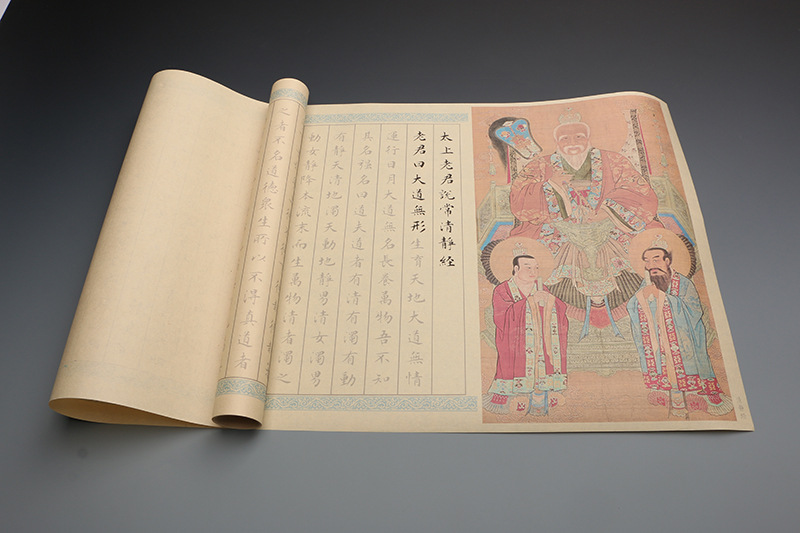 太上老君說常清靜経
老君曰大道無形生育天地大道無情
運行日月大道無名長養萬物吾不知
其名強名曰道夫道者有清有濁有動
有靜天清地濁天動地靜男清女濁男
動女靜降本流末而生萬物清者濁之
之者不名道德衆生所以不得真道者